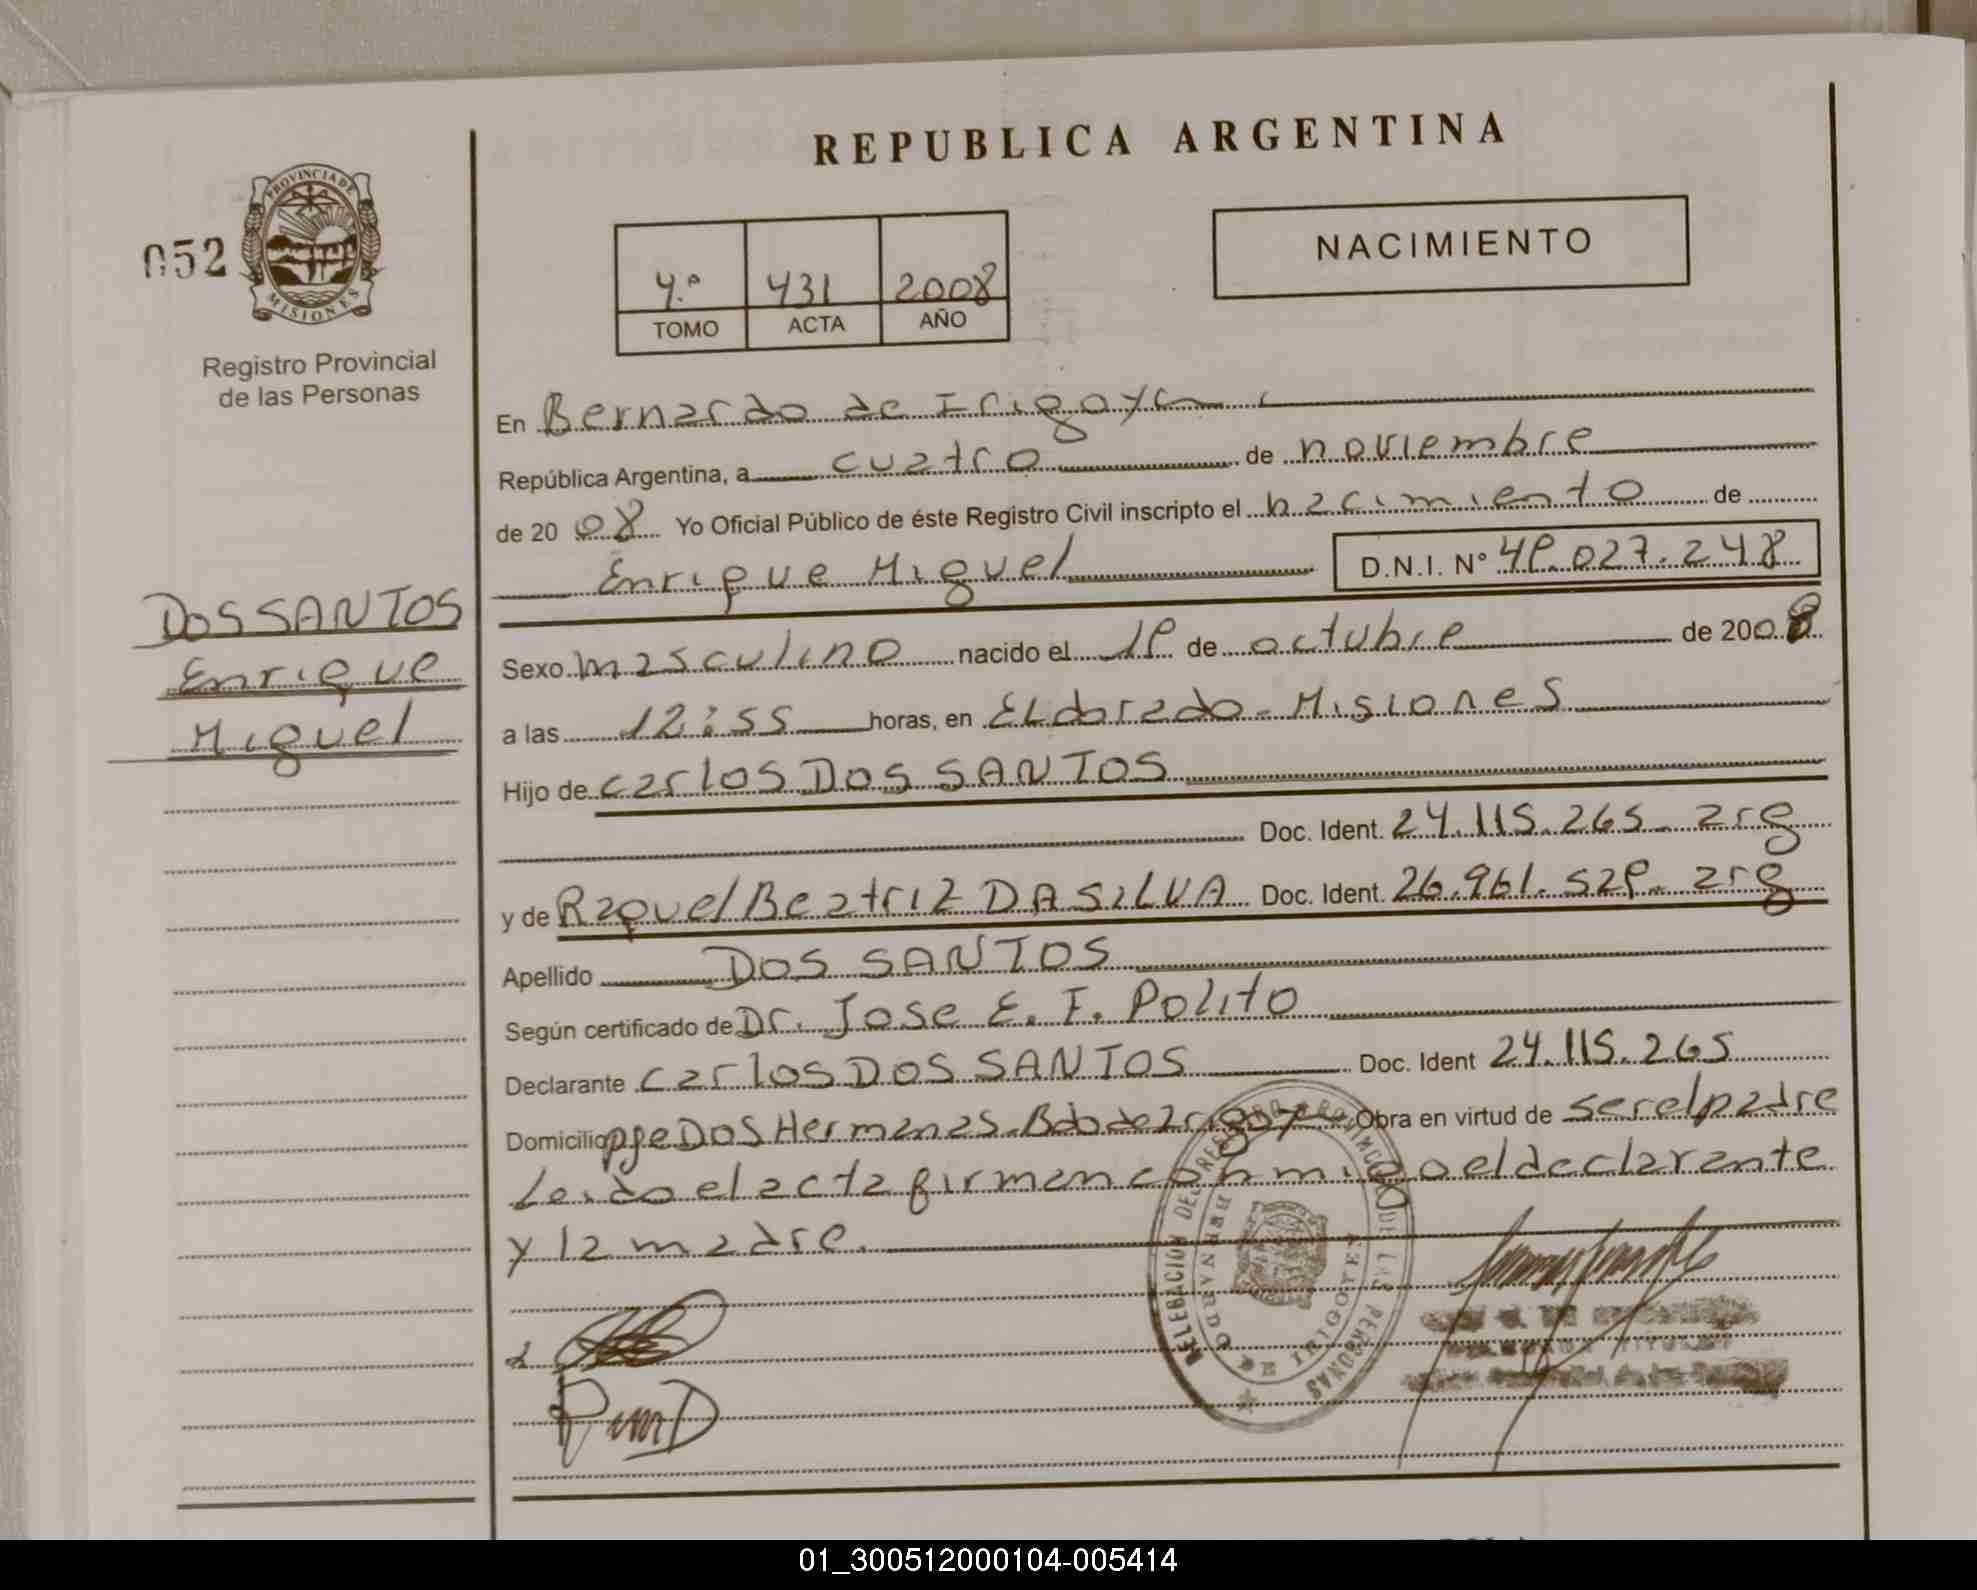 REPUBLICA ARGENTINA
052
PROVINCIA DE
MISIONES
Registro Provincial
de las Personas
4.º 431 2008
TOMO ACTA AÑO
NACIMIENTO
En Bernardo de Irigoyen
República Argentina, a cuatro de noviembre
de 2008 Yo Oficial Público de éste Registro Civil inscripto el nacimiento de
Enrique Miguel D.N.I. Nº 49.027.248
DOS SANTOS
Enrique
Miguel
Sexo masculino nacido el 19 de octubre de 2008
a las 12:55 horas, en ELdorado - Misiones
Hijo de Carlos DOS SANTOS
Doc. Ident. 24.115.265 - arg
y de Raquel Beatriz DA SILVA Doc. Ident. 26.961.529 - arg
Apellido DOS SANTOS
Según certificado de Dr. Jose E. F. Polito
Declarante Carlos DOS SANTOS Doc. Ident 24.115.265
Domicilio pje Dos Hermanas - Bdo de Irigoy Obra en virtud de ser el padre
Leido el acta firman conmigo el declarante
y la madre.
DELEGACION DEL REGISTRO PROVINCIAL DE LAS PERSONAS
BERNARDO DE IRIGOYEN
01_300512000104-005414